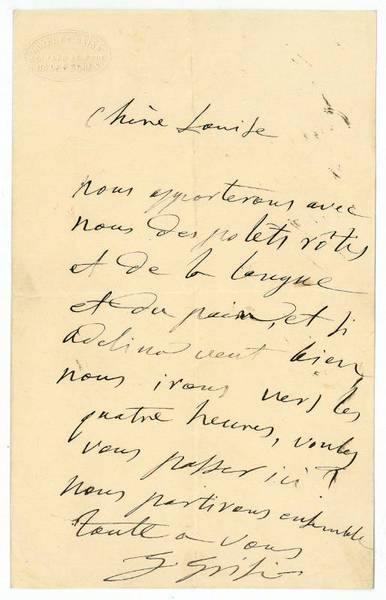 Chère Louise
nous apporterons avec
nous des polêts rôtis
et de la langue
et du pain, et si
Adelina veut bien
nous irons vers les
quatre heures, voulez
vous passer ici ?
nous partirons ensemble
toute a vous
G Grisi